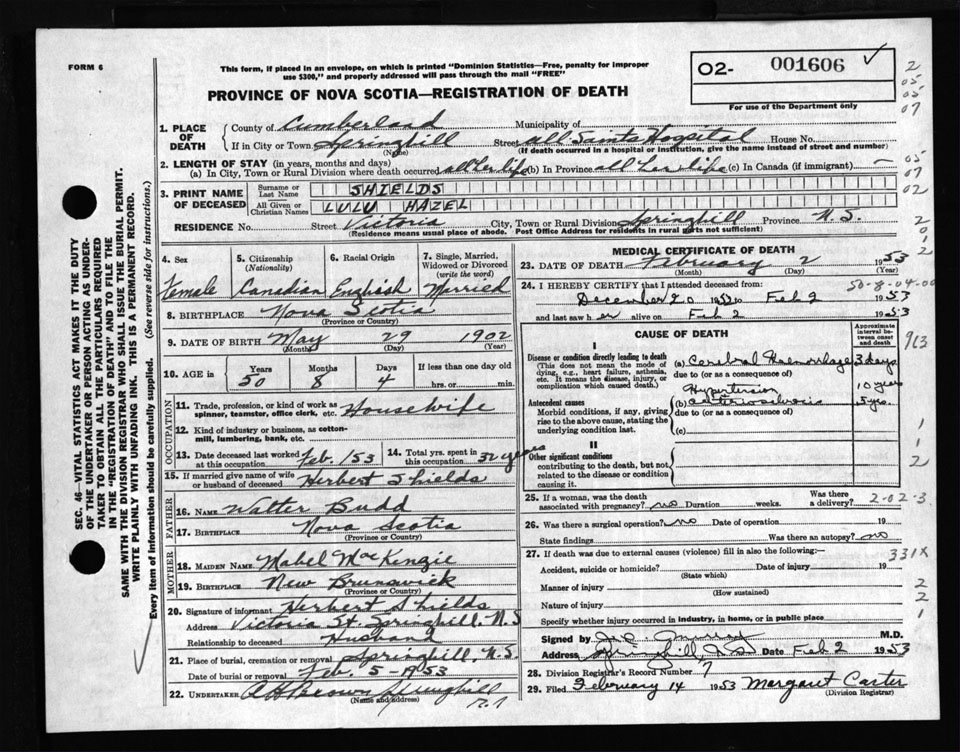 FORM 6
This form, if placed in an envelope, on which is printed "Dominion Statistics—Free, penalty for improper
use $300," and properly addressed will pass through the mail "FREE"
PROVINCE OF NOVA SCOTIA—REGISTRATION OF DEATH
02- 001606
For use of the Department only
2
05
05
07
05
07
02
2
0
1
2
2
SEC. 46—VITAL STATISTICS ACT MAKES IT THE DUTY
OF THE UNDERTAKER OR PERSON ACTING AS UNDER-
TAKER TO OBTAIN ALL THE PARTICULARS REQUIRED
IN THE "REGISTRATION OF DEATH" AND TO FILE THE
SAME WITH THE DIVISION REGISTRAR WHO SHALL ISSUE THE BURIAL PERMIT.
WRITE PLAINLY WITH UNFADING INK. THIS IS A PERMANENT RECORD.
Every item of information should be carefully supplied. (See reverse side for instructions.)
1. PLACE OF DEATH
County of Cumberland Municipality of
If in City or Town Springhill Street All Saints Hospital House No.
(Name) (If death occurred in a hospital or institution, give the name instead of street and number)
2. LENGTH OF STAY (in years, months and days)
(a) In City, Town or Rural Division where death occurred all her life (b) In Province all her life (c) In Canada (if immigrant) —
3. PRINT NAME OF DECEASED
Surname or Last Name SHIELDS
All Given or Christian Names LULU HAZEL
RESIDENCE No. Street Victoria City, Town or Rural Division Springhill Province N.S.
(Residence means usual place of abode. Post Office Address for residents in rural parts not sufficient)
4. Sex Female
5. Citizenship (Nationality) Canadian
6. Racial Origin English
7. Single, Married, Widowed or Divorced (write the word) Married
8. BIRTHPLACE Nova Scotia
(Province or Country)
9. DATE OF BIRTH May 29 1902
(Month) (Day) (Year)
10. AGE in Years 50 Months 8 Days 4 If less than one day old hrs. or min.
OCCUPATION
11. Trade, profession or kind of work as spinner, teamster, office clerk, etc. Housewife
12. Kind of industry or business, as cotton-mill, lumbering, bank, etc.
13. Date deceased last worked at this occupation Feb. 1 53
14. Total yrs. spent in this occupation 32 years
15. If married give name of wife or husband of deceased Herbert Shields
FATHER
16. NAME Walter Budd
17. BIRTHPLACE Nova Scotia
(Province or Country)
MOTHER
18. MAIDEN NAME Mabel MacKenzie
19. BIRTHPLACE New Brunswick
(Province or Country)
20. Signature of informant Herbert Shields
Address Victoria St. Springhill, N.S
Relationship to deceased Husband
21. Place of burial, cremation or removal Springhill, N.S.
Date of burial or removal Feb. 5-1953
22. UNDERTAKER Brown Springhill
(Name and address)
MEDICAL CERTIFICATE OF DEATH
23. DATE OF DEATH February 2 1953
(Month) (Day) (Year)
24. I HEREBY CERTIFY that I attended deceased from: 50-8-04-00
December 20 1952 to Feb 2 1953
and last saw her alive on Feb 2 1953
CAUSE OF DEATH
Approximate interval between onset and death
963
I
Disease or condition directly leading to death
(This does not mean the mode of dying, e.g., heart failure, asthenia, etc. It means the disease, injury, or complication which caused death.)
(a) Cerebral Haemorrhage 3 days
due to (or as a consequence of)
Hypertension 10 years
Antecedent causes
Morbid conditions, if any, giving rise to the above cause, stating the underlying condition last.
(b) arteriosclerosis 5 yrs.
due to (or as a consequence of)
(c)
II
Other significant conditions
contributing to the death, but not related to the disease or condition causing it.
1
1
2
25. If a woman, was the death associated with pregnancy? no Duration weeks. Was there a delivery? 2-02-3
26. Was there a surgical operation? no Date of operation 19
State findings Was there an autopsy? no
27. If death was due to external causes (violence) fill in also the following:— 331X
Accident, suicide or homicide? Date of injury 19
(State which)
Manner of injury 2
(How sustained)
Nature of injury 2
Specify whether injury occurred in industry, in home, or in public place 1
Signed by M.D.
Address Springhill, N.S. Date Feb 2 1953
28. Division Registrar's Record Number 7
29. Filed February 14 1953 Margaret Carter
(Division Registrar)